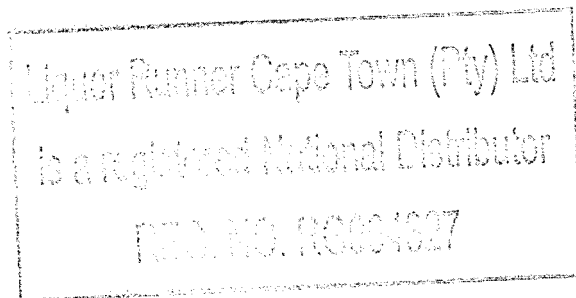 Liquor Runner Cape Town (Pty) Ltd
is a registered National Distributor
REG. NO. RG004627